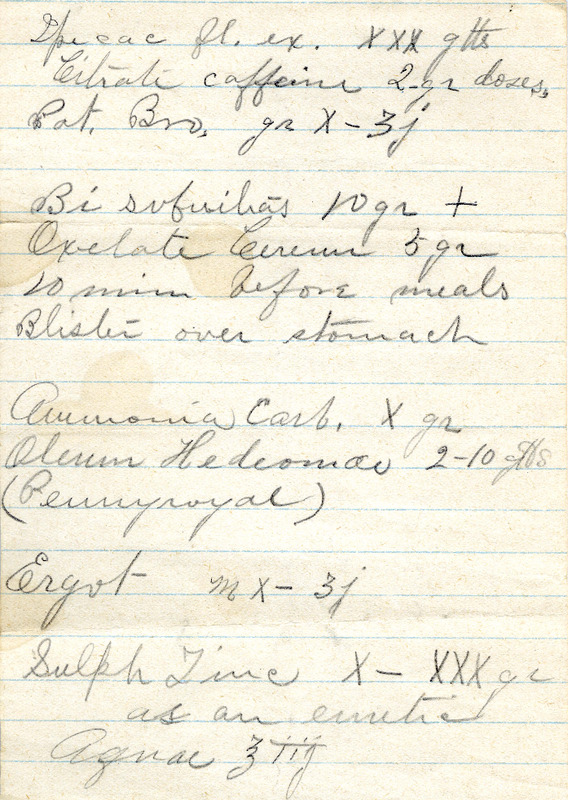 Ipecac fl. ex. XXX gtts
Citrate caffeine 2-gr doses,
Pot. Bro, gr X - ʒj
Bi subnitras 10 gr +
Oxelate Cereum 5 gr
20 min before meals
Blister over stomach
Ammonia Carb. X gr
Oleum Hedeomae 2-10 gtts
(Pennyroyal)
Ergot m X - ʒj
Sulph Zinc X - XXX gr
as an emetic
Aquae ʒ iij